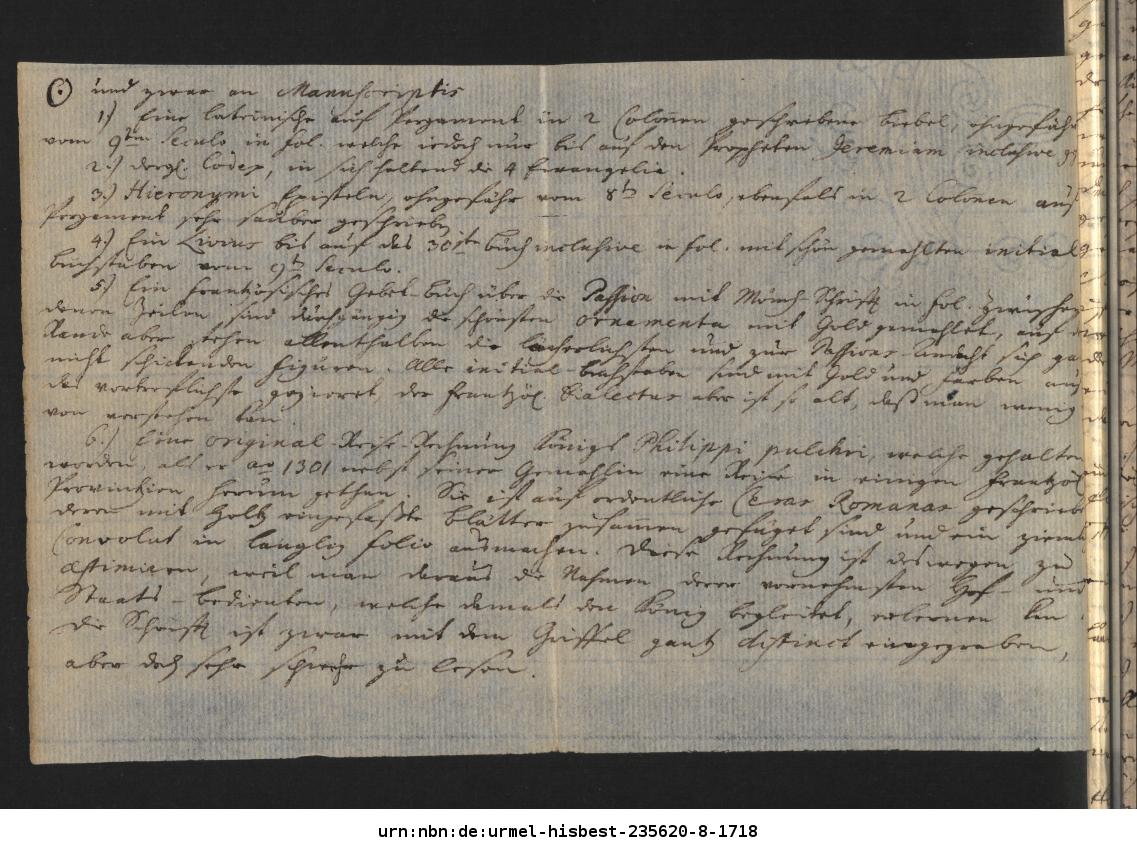 ⊙ und zwar an Manuscriptis
1.) Eine lateinische auf Pergament in 2 Colonen geschriebene Biebel, ohngefähr
vom 9ten Seculo in fol. welche iedoch nur bis auf den Propheten Jeremiam inclusive
2.) dergl. Codex, in sich haltend die 4 Evangelia.
3.) Hieronymi Episteln, ohngefähr vom 8ten Seculo, ebenfals in 2 Colonen auf
Pergament sehr sauber geschrieben
4.) Ein Livius bis auf das 30iste buch inclusive in fol. mit schön gemahlten initial
buchstaben vom 9ten Seculo.
5.) Ein frantzösisches Gebet-buch über die Passion mit Mönch-Schrifft in fol. zwischen
denen Zeilen sind durchgängig die schönsten ornamenta mit Gold gemahlet, auf dem
Rande aber stehen allenthalben die lächerlichsten und zur Passions-Andacht sich gar
nicht schickenden Figuren. Alle initial-buchstaben sind mit Gold und Farben auf
das vortreflichste gezieret, der frantzös. Dialectus aber ist so alt, daß man wenig
von verstehen kan.
6.) Eine original-Reise-Rechnung Königs Philippi pulchri, welche gehalten
worden, als er ao 1301 nebst seiner Gemahlin eine Reise in einigen frantzös.
Provintzien herum gethan. Sie ist auf ordentliche Ceras Romanas geschrieben
deren mit Holtz eingefaßte blätter zusamen gefüget sind und ein ziemlich
Convolut in länglich folio ausmachen. Diese Rechnung ist deswegen zu
æstimiren, weil man daraus die Nahmen derer vornehmsten Hof- und
Staats-bedienten, welche damals den König begleitet, erlernen kan
die Schrifft ist zwar mit dem Griffel gantz distinct eingegraben,
aber doch sehr schwehr zu lesen.
urn:nbn:de:urmel-hisbest-235620-8-1718